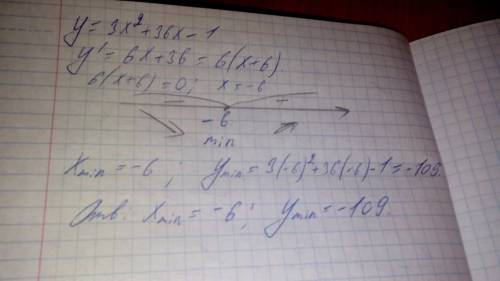 y = 3x² + 36x - 1
y' = 6x + 36 = 6(x+6)
6(x+6) = 0; x = -6
- +
-6
min
x min = -6; y min = 3(-6)² + 36(-6) - 1 = -109.
Отв. x min = -6; y min = -109.